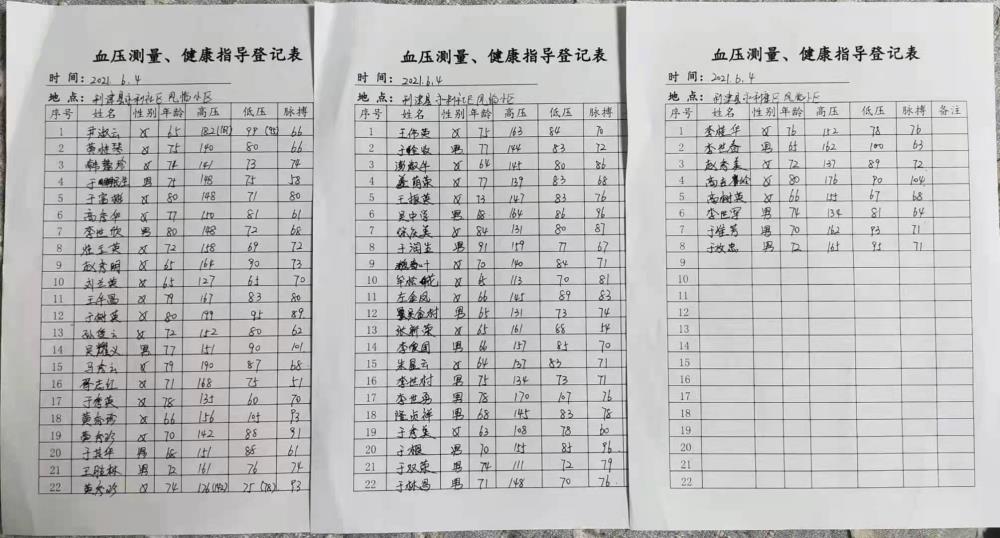 血压测量、健康指导登记表
时 间：2021. 6. 4
地 点：利津县永利社区凤临小区
序号 姓名 性别 年龄 高压 低压 脉搏
1 尹淑云 女 65 182 99 66
2 女 75 140 80 66
3 韩 女 74 141 73 74
4 于 男 75 148 75 58
5 于富 女 80 148 71 80
6 高秀华 女 77 150 81 61
7 李世欣 男 80 148 72 68
8 任玉英 女 72 158 69 72
9 赵秀明 女 65 164 90 73
10 刘兰英 女 65 127 65 70
11 王 女 79 167 83 80
12 于树英 女 80 199 95 89
13 孙 云 女 72 152 80 62
14 吴耀义 男 77 151 90 101
15 马秀云 女 79 190 87 68
16 志红 女 71 168 75 51
17 于秀英 女 78 135 60 70
18 黄秀 女 66 156 105 93
19 黄秀 女 70 142 88 91
20 于其华 男 68 151 88 61
21 王胜林 男 72 161 76 74
22 黄秀 女 74 126(142) 75(78) 93
血压测量、健康指导登记表
时 间：2021.6.4
地 点：利津县永利社区凤临小区
序号 姓名 性别 年龄 高压 低压 脉搏
1 王伟英 女 75 163 84 70
2 于 男 77 144 83 72
3 女 64 145 80 86
4 荣 女 77 139 83 68
5 王振英 女 73 147 83 76
6 吴中学 男 68 164 86 96
7 徐庆美 女 84 131 80 87
8 于润生 男 91 159 77 67
9 叶 女 70 140 84 71
10 花 女 113 70 81
11 左金凤 女 66 145 89 83
12 吴金村 男 65 131 73 74
13 张新荣 女 65 161 68 54
14 李 国 男 66 157 85 70
15 朱星云 女 64 137 83 71
16 李世村 男 75 134 73 71
17 李世勇 男 78 170 107 76
18 隆贞祥 男 68 145 83 78
19 于秀美 女 63 108 78 60
20 于根 男 70 155 85 96
21 于双荣 男 74 111 72 79
22 于林昌 男 71 148 70 76
血压测量、健康指导登记表
时 间：2021.6.4
地 点：利津县永利社区凤临小区
序号 姓名 性别 年龄 高压 低压 脉搏 备注
1 李桂华 女 76 152 78 76
2 李世 男 65 162 100 63
3 赵秀美 女 72 137 89 72
4 高 女 80 176 90 104
5 高树英 女 66 155 67 68
6 李世军 男 74 134 81 64
7 于维芳 男 70 162 93 71
8 于政忠 男 72 165 95 71
9
10
11
12
13
14
15
16
17
18
19
20
21
22